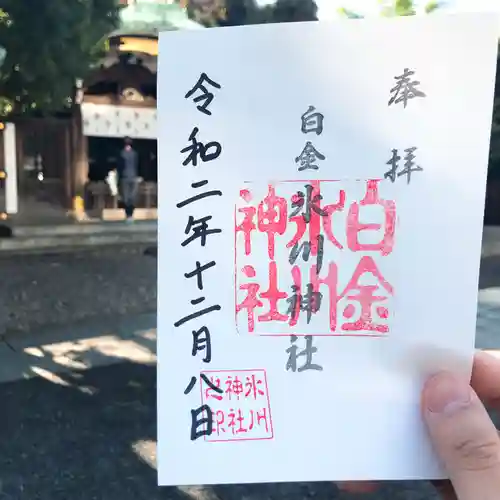 奉拝
白金氷川神社
白金氷川神社
令和二年十二月八日
氷川神社之印